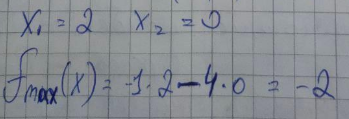 x₁ = 2 x₂ = 0
fmax(x) = -1·2 - 4·0 = -2